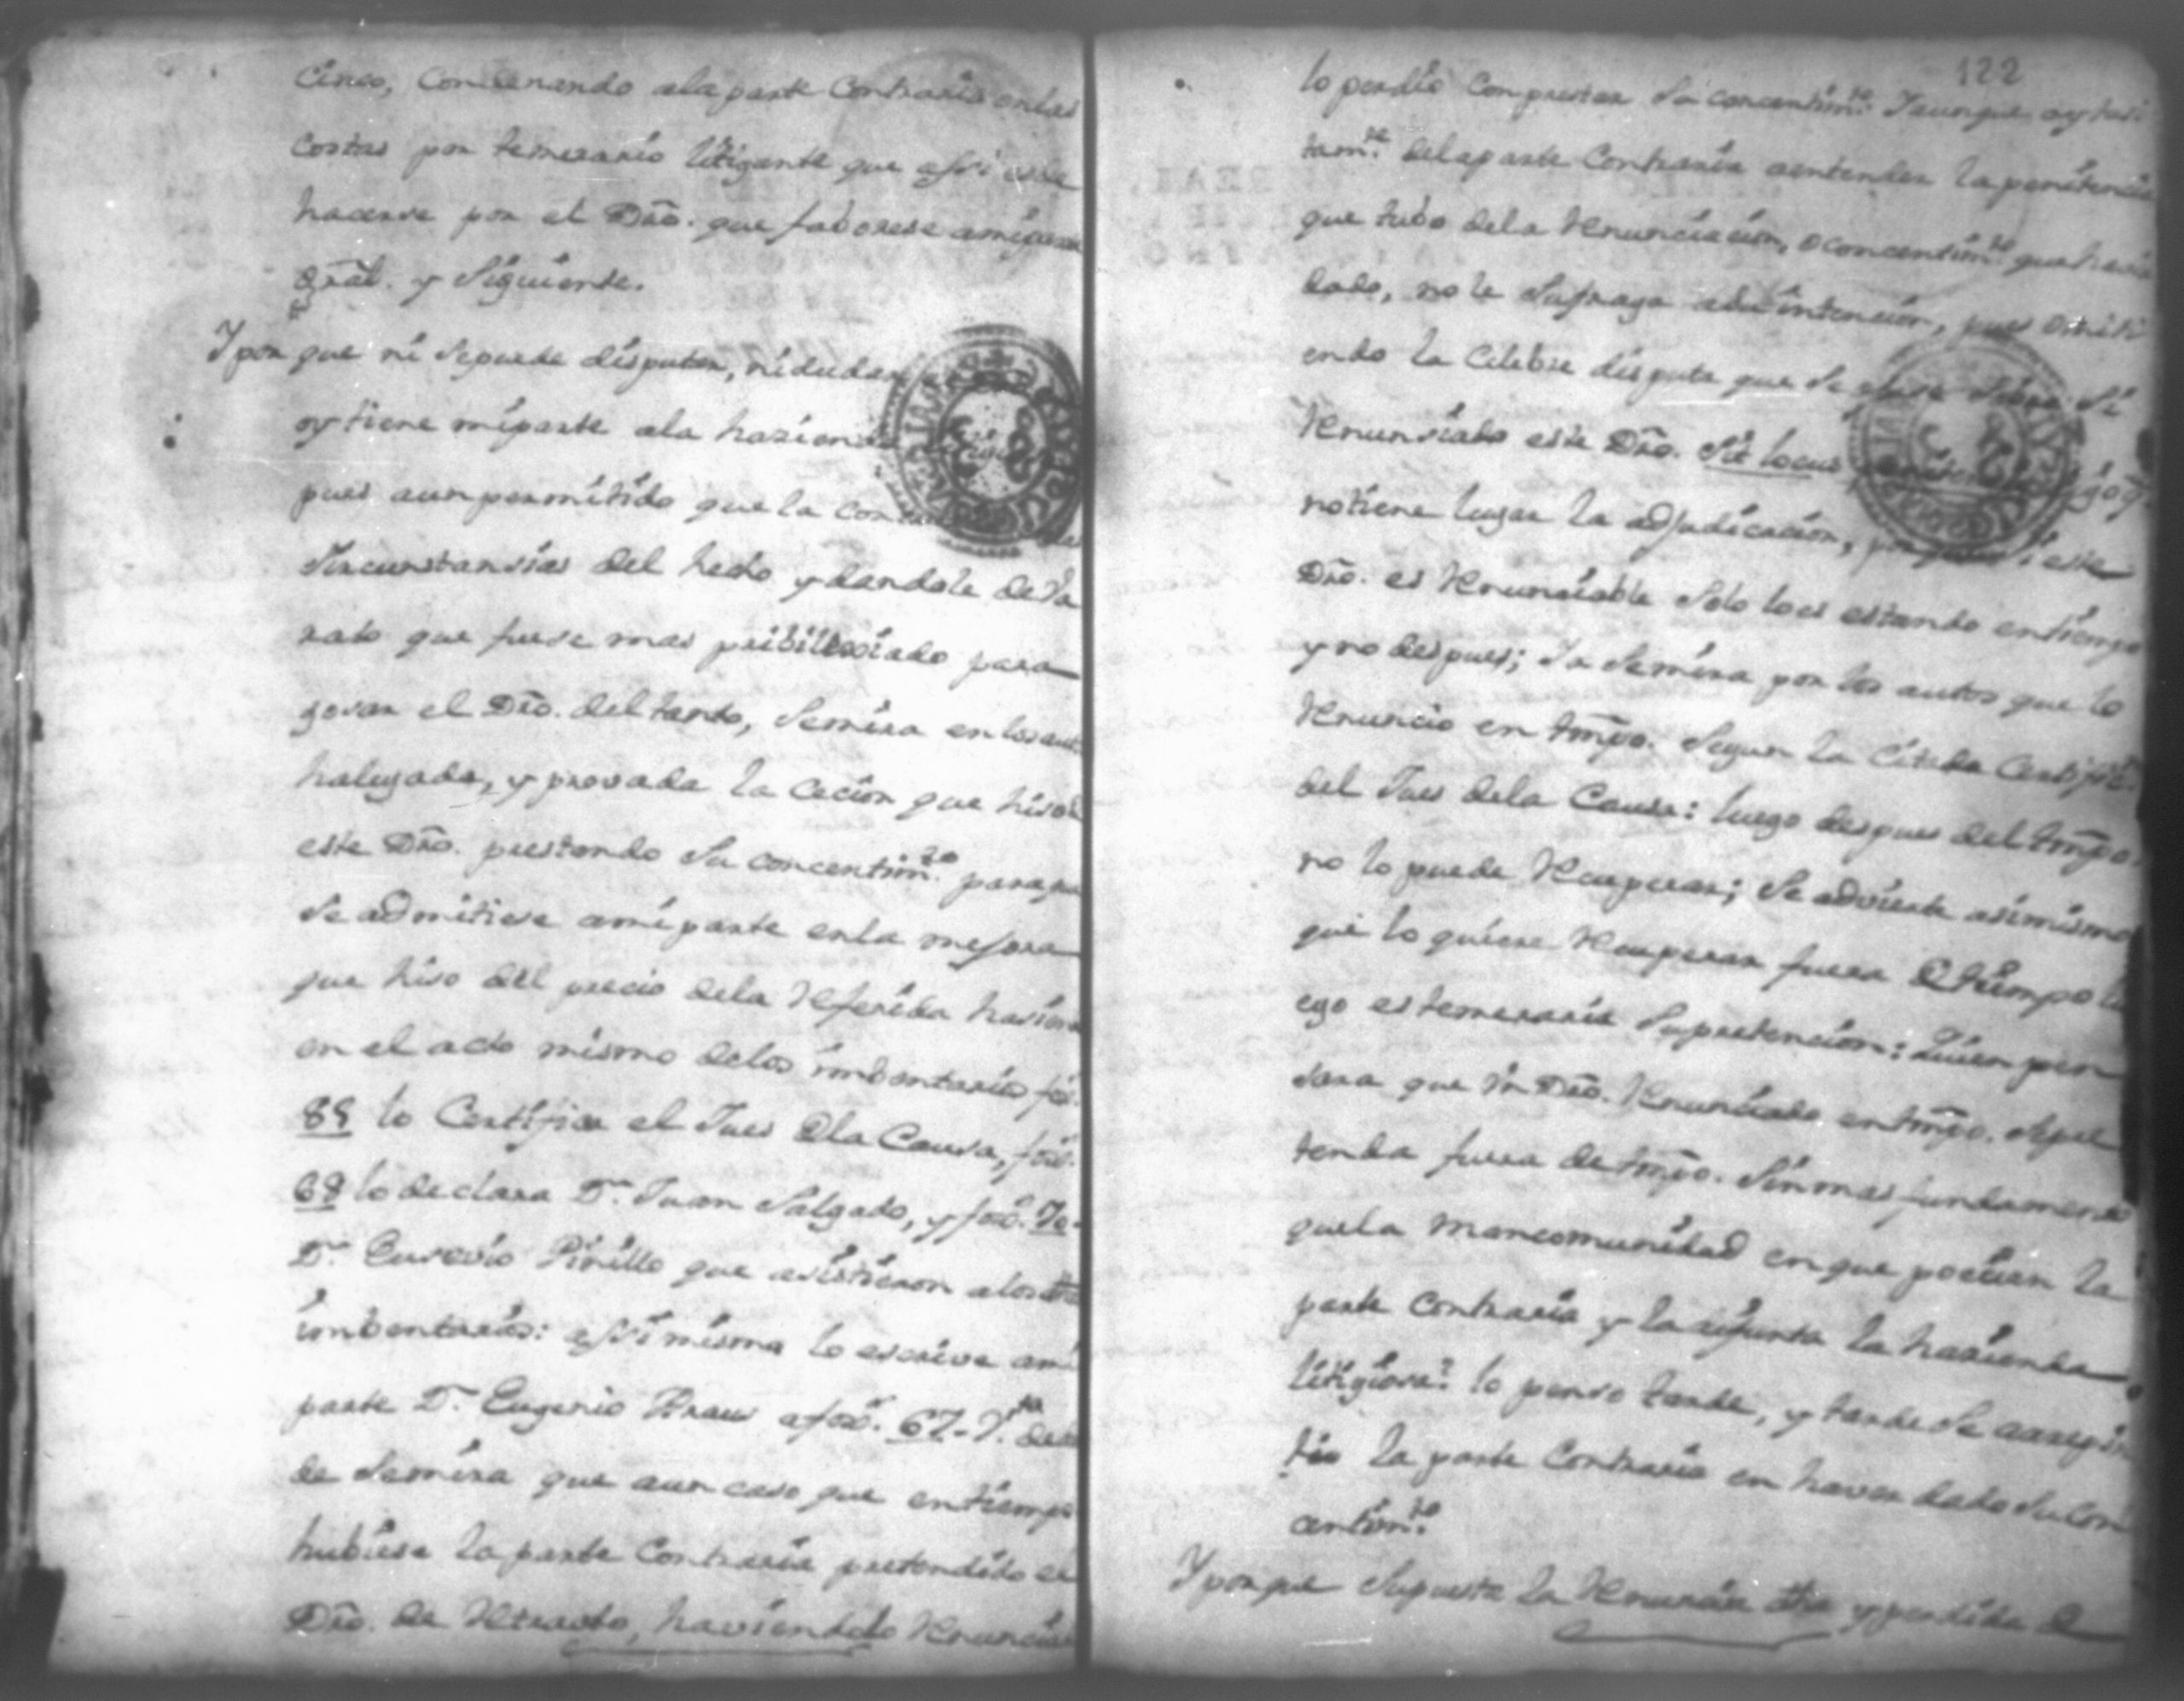 Cinco, Condenando ala parte Contraria enlas
Costas por temerario litigante que assi
hacerse por el Dro. que faborese amiparte
gral. y siguiente.
Y por que ni sepuede disputar, nidudar
oy tiene miparte ala hazienda
pues aunpermitido que la
sircunstansias del hecho y dandole de
rato que fuese mas pribilexiado para
gosar el Dro. del tanto, semira enlos
halegada, y provada la Cecion que hiso
este Dro. prestando su concentimto. paraque
se admitiese amiparte enla mejora
que hiso del precio dela Referida
en el acto mismo delos imbentarios
88 lo Certifica el Jues Dla Causa, fox.
68 lo declara Dn. Juan Salgado, y fox.
Dn. Eusevio Pinillo que asistieron
imbentarios: assimismo lo escrive ami
parte Dn. Eugenio Araus afox. 67.
de semira que aun caso que entiempo
hubiese laparte Contraria pretendido el
Dro. de Retracto, haviendolo
122
lo perdio Con prestar su concentimto. Y aunque
tamte. delaparte Contraria aentender la penitencia
que tubo dela Renunciacion, oconcentimto. que havia
dado, no le sufraga asuintencion, pues omiti
endo la Celebre disputa que se sobre si
Renunsiado este Dro. sit locus
notiene lugar la adjudicacion, este
Dro. es Renunciable solo loes estando entiempo
y no despues; Ya semira por los autos que lo
Renuncio en tmpo. segun la Citada
del Jues dela Causa: luego despues del tmpo.
no lo puede Recuperar; se advierte asimismo
que lo quiere Recuperar fuera D tiempo lu
ego es temeraria supretencion: Quien pen
sara que un Dro. Renunciado entmpo. sepre
tenda fuera detmpo. sinmas fundamento
quela mancomunidad enque poceian la
parte Contraria y la la hazienda
litigiosa? lo penso tarde, y tarde se arrepin
tio la parte Contraria en haver dado sucon
centimto.
Y porque supuesta la y perdida